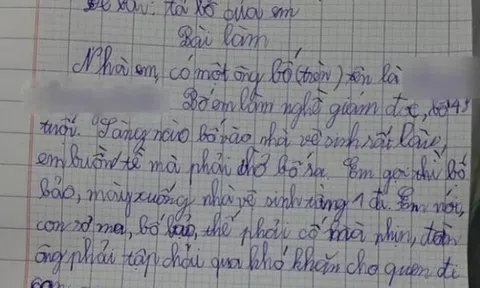 Đề bài: tả bố của em
Bài làm
Nhà em, có một ông bố (trên) tên là
Bố em làm nghề giám đốc, bố 43
tuổi. Sáng nào bố vào nhà vệ sinh rất lâu,
em buồn tè mà phải chờ bố ra. Em gọi thì bố
bảo, mày xuống nhà vệ sinh tầng 1 đi. Em nói,
con sợ ma, bố bảo, thế phải cố mà nhịn, đàn
ông phải tập chải qua khó khăn cho quen đi